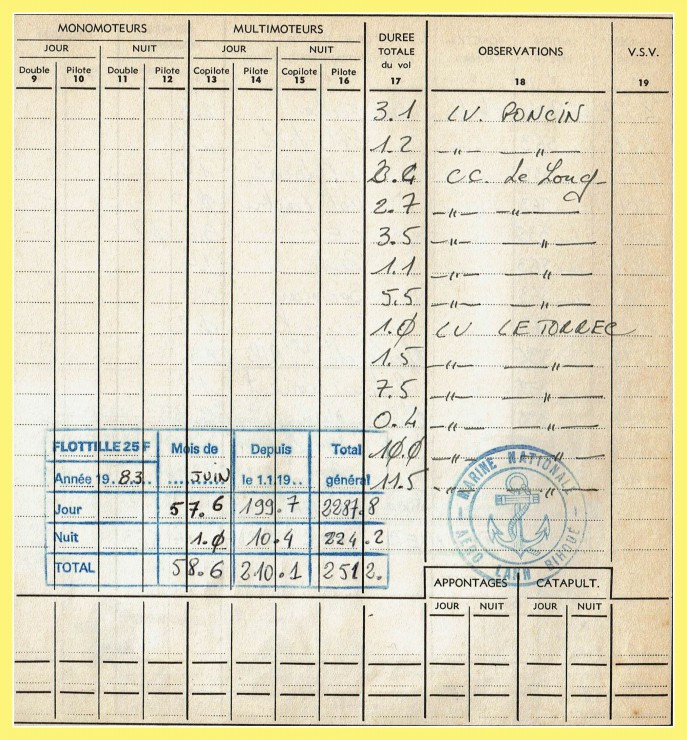 MONOMOTEURS MULTIMOTEURS DUREE TOTALE du vol 17 OBSERVATIONS 18 V.S.V. 19
JOUR NUIT JOUR NUIT
Double 9 Pilote 10 Double 11 Pilote 12 Copilote 13 Pilote 14 Copilote 15 Pilote 16
3.1 LV. PONCIN
1.2 -"- -"-
CC. Le Loug
2.7 -"- -"-
3.5 -"- -"-
1.1 -"- -"-
5.5 -"- -"-
1.0 LV LE TORREC
1.5 -"- -"-
7.5 -"- -"-
0.4 -"- -"-
10.0 -"- -"-
11.5 -"- -"-
FLOTTILLE 25 F Mois de Depuis Total
Année 19.83.. ....JUIN le 1.1.19... général
Jour 57.6 199.7 2287.8
Nuit 1.0 10.4 224.2
TOTAL 58.6 210.1 2512.
MARINE NATIONALE
AERO LANN BIHOUE
APPONTAGES CATAPULT.
JOUR NUIT JOUR NUIT